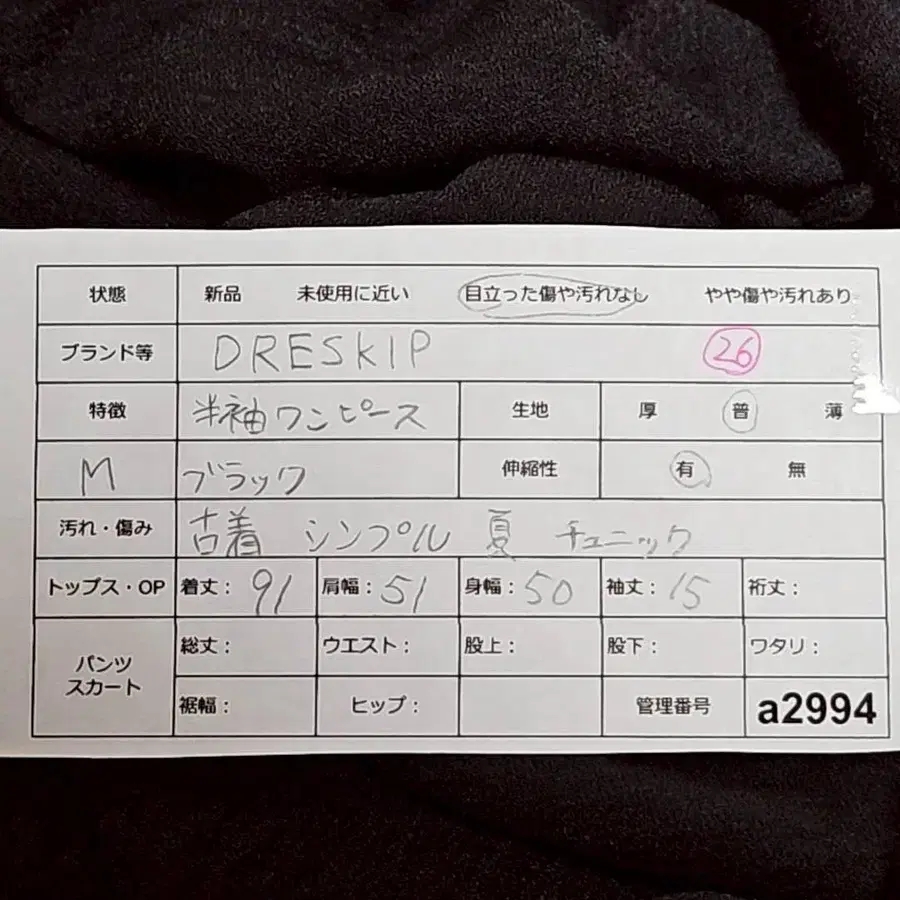 状態 新品 未使用に近い 目立った傷や汚れなし やや傷や汚れあり
ブランド等 DRESKIP 26
特徴 半袖ワンピース 生地 厚 普 薄
M ブラック 伸縮性 有 無
汚れ・傷み 古着 シンプル 夏 チュニック
トップス・OP 着丈: 91 肩幅: 51 身幅: 50 袖丈: 15 裄丈:
パンツ スカート 総丈: ウエスト: 股上: 股下: ワタリ:
裾幅: ヒップ: 管理番号 a2994